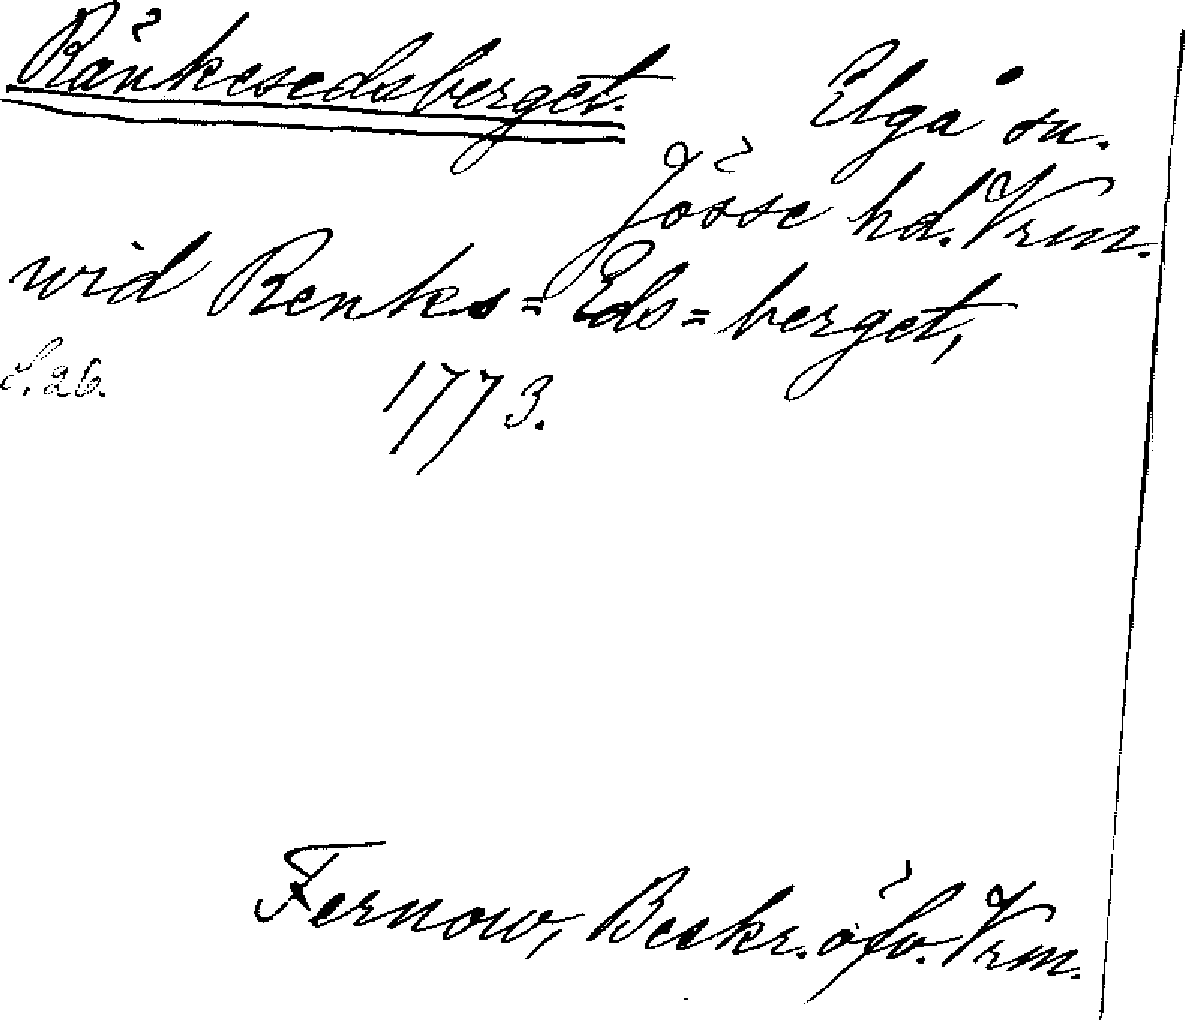 Ränkesedsberget. Elgå sn.
Jösse hd. Vrm.
wid Renks=Eds=berget,
S. 26. 1773.
Fernow, Beskr. öfv. Vrm.